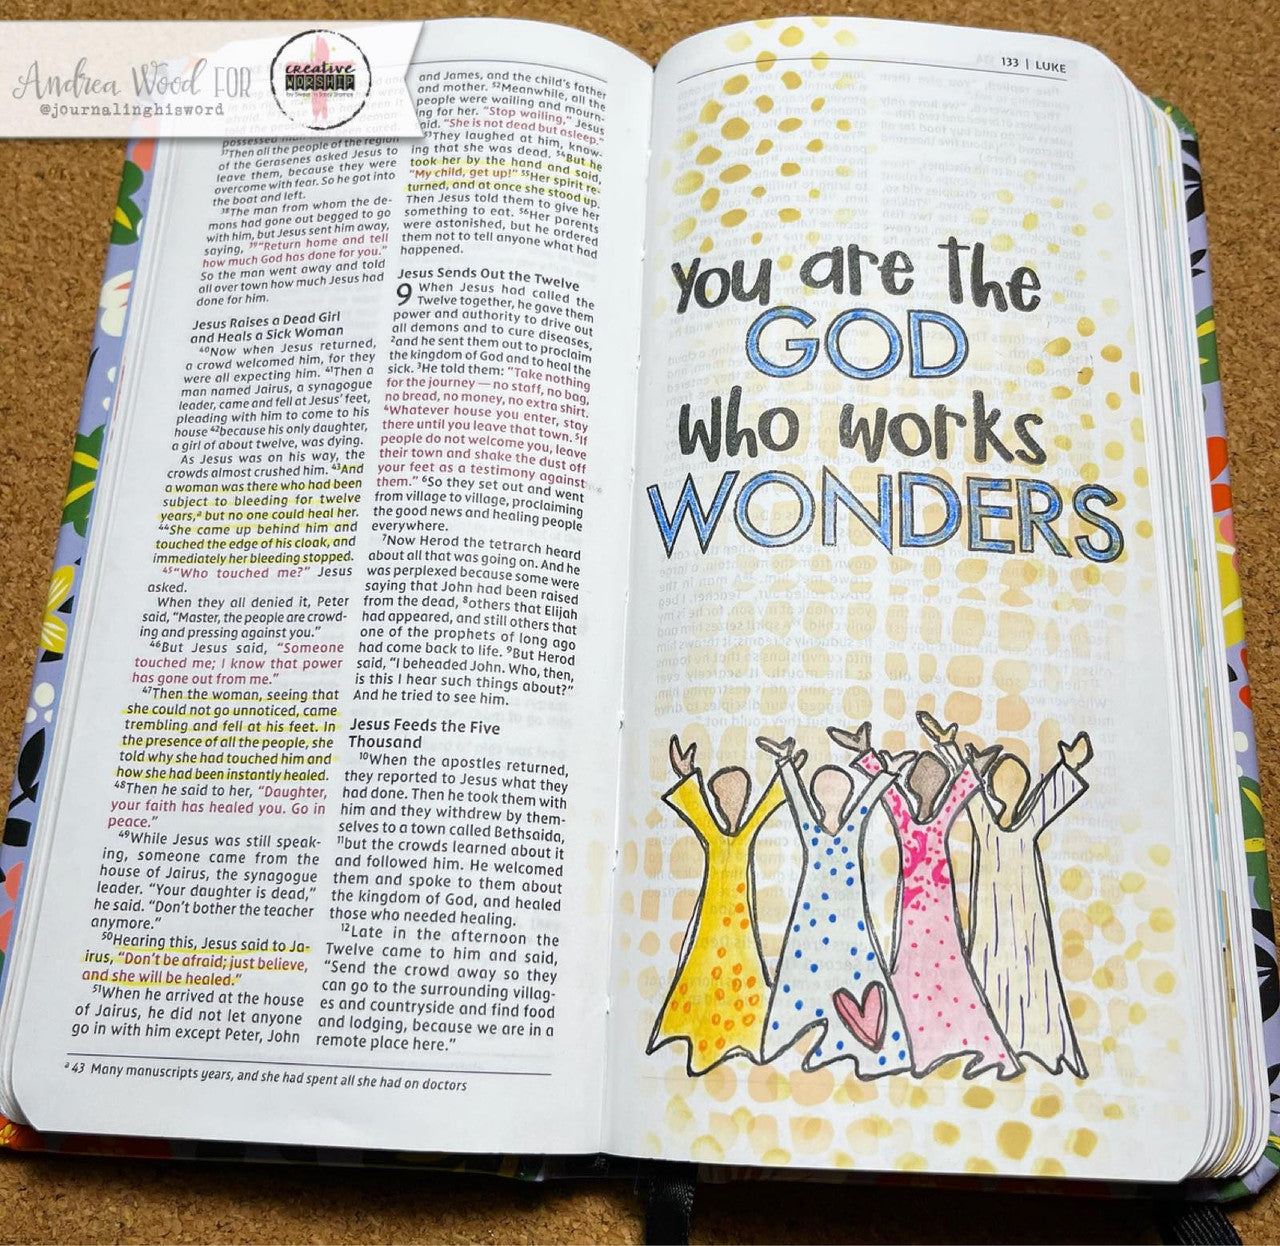 Andrea Wood FOR
@journalinghisword
creative
WORSHIP
possessed
37Then all the people of the region
of the Gerasenes asked Jesus to
leave them, because they were
overcome with fear. So he got into
the boat and left.
38The man from whom the de-
mons had gone out begged to go
with him, but Jesus sent him away,
saying, 39"Return home and tell
how much God has done for you."
So the man went away and told
all over town how much Jesus had
done for him.
Jesus Raises a Dead Girl
and Heals a Sick Woman
40Now when Jesus returned,
a crowd welcomed him, for they
were all expecting him. 41Then a
man named Jairus, a synagogue
leader, came and fell at Jesus' feet,
pleading with him to come to his
house 42because his only daughter,
a girl of about twelve, was dying.
As Jesus was on his way, the
crowds almost crushed him. 43And
a woman was there who had been
subject to bleeding for twelve
years,a but no one could heal her.
44She came up behind him and
touched the edge of his cloak, and
immediately her bleeding stopped.
45"Who touched me?" Jesus
asked.
When they all denied it, Peter
said, "Master, the people are crowd-
ing and pressing against you."
46But Jesus said, "Someone
touched me; I know that power
has gone out from me."
47Then the woman, seeing that
she could not go unnoticed, came
trembling and fell at his feet. In
the presence of all the people, she
told why she had touched him and
how she had been instantly healed.
48Then he said to her, "Daughter,
your faith has healed you. Go in
peace."
49While Jesus was still speak-
ing, someone came from the
house of Jairus, the synagogue
leader. "Your daughter is dead,"
he said. "Don't bother the teacher
anymore."
50Hearing this, Jesus said to Ja-
irus, "Don't be afraid; just believe,
and she will be healed."
51When he arrived at the house
of Jairus, he did not let anyone
go in with him except Peter, John
and James, and the child's father
and mother. 52Meanwhile, all the
people were wailing and mourn-
ing for her. "Stop wailing," Jesus
said. "She is not dead but asleep."
53They laughed at him, know-
ing that she was dead. 54But he
took her by the hand and said,
"My child, get up!" 55Her spirit re-
turned, and at once she stood up.
Then Jesus told them to give her
something to eat. 56Her parents
were astonished, but he ordered
them not to tell anyone what had
happened.
Jesus Sends Out the Twelve
9 When Jesus had called the
Twelve together, he gave them
power and authority to drive out
all demons and to cure diseases,
2and he sent them out to proclaim
the kingdom of God and to heal the
sick. 3He told them: "Take nothing
for the journey — no staff, no bag,
no bread, no money, no extra shirt.
4Whatever house you enter, stay
there until you leave that town. 5If
people do not welcome you, leave
their town and shake the dust off
your feet as a testimony against
them." 6So they set out and went
from village to village, proclaiming
the good news and healing people
everywhere.
7Now Herod the tetrarch heard
about all that was going on. And he
was perplexed because some were
saying that John had been raised
from the dead, 8others that Elijah
had appeared, and still others that
one of the prophets of long ago
had come back to life. 9But Herod
said, "I beheaded John. Who, then,
is this I hear such things about?"
And he tried to see him.
Jesus Feeds the Five
Thousand
10When the apostles returned,
they reported to Jesus what they
had done. Then he took them with
him and they withdrew by them-
selves to a town called Bethsaida,
11but the crowds learned about it
and followed him. He welcomed
them and spoke to them about
the kingdom of God, and healed
those who needed healing.
12Late in the afternoon the
Twelve came to him and said,
"Send the crowd away so they
can go to the surrounding villag-
es and countryside and find food
and lodging, because we are in a
remote place here."
a 43 Many manuscripts years, and she had spent all she had on doctors
133 | LUKE
you are the
GOD
who works
WONDERS